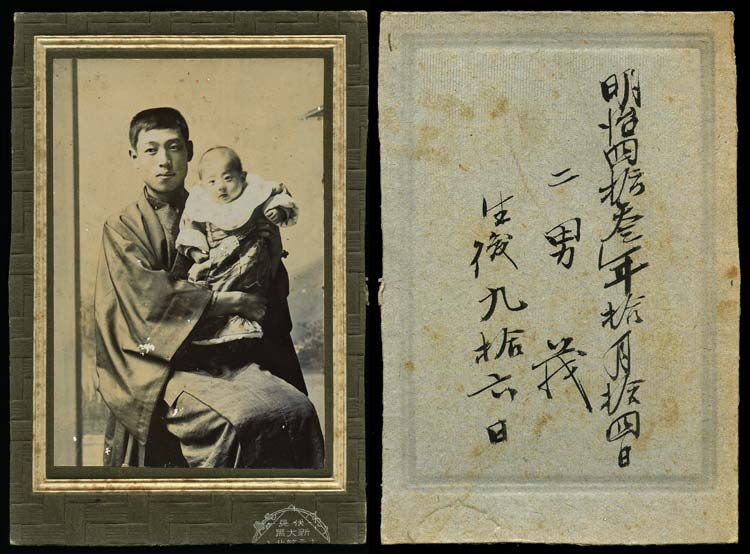 明治四拾叁年拾月拾四日
二男 茂
生後九拾六日